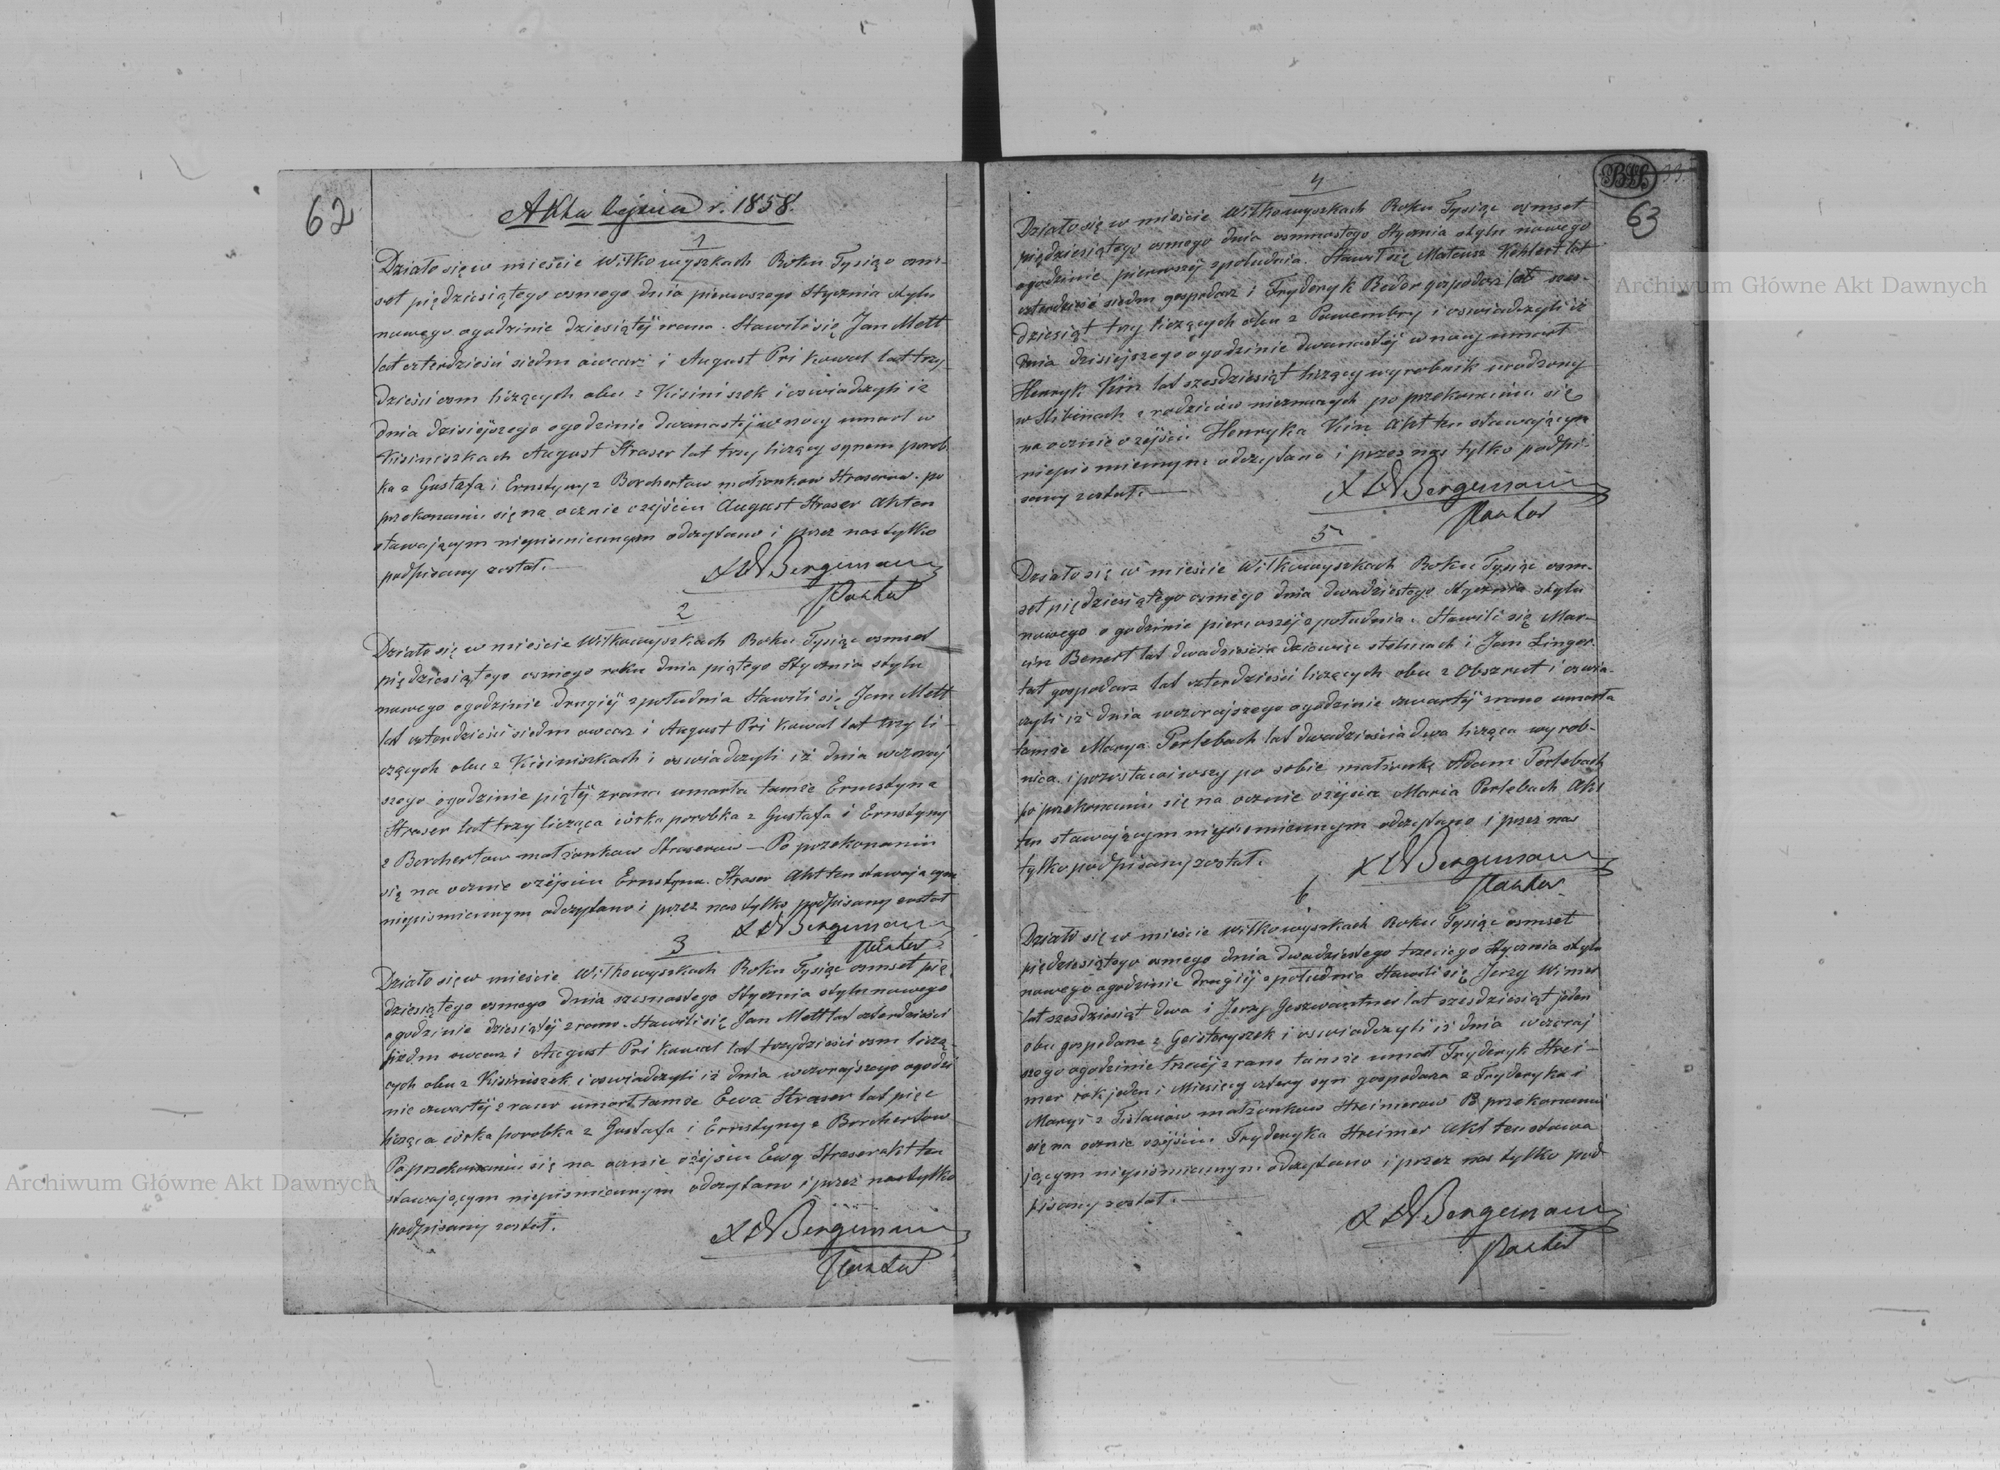 62
Akta zejścia r. 1858.
1
Działo się w mieście Wiłkowyszkach Roku Tysiąc osm-
set pięćdziesiątego osmego dnia pierwszego Stycznia stylu
nowego o godzinie dziesiątéj zrana. Stawili się Jan Mett
lat czterdzieści siedm owcarz i August Pri Kowal lat trzy-
dzieści osm liczących obu z Kisiniszek i oświadczyli iż
dnia dzisiejszego o godzinie dwanastéj w nocy umarł w
Kisiniszkach August Straser lat trzy liczący synem parob-
ka z Gustafa i Ernstyny z Borchertow małżonkow Straserow. po
przekonaniu się na ocznie o zejściu August Straser Akt ten
stawającym niepismiennym odczytano i przez nas tylko
podpisany został.
X LW Bergemann
Pastor
2
Działo się w mieście Wiłkowyszkach Roku Tysiąc osmset
pięćdziesiątego osmego roku dnia piątego Stycznia stylu
nowego o godzinie drugiéj z południa Stawili się Jan Mett
lat czterdzieści siedm owcarz i August Pri Kowal lat trzy li-
czących obu z Kisiniszkach i oswiadczyli iż dnia wczoraj
szego o godzinie piątéj zrana umarła tamże Ernestyna
Straser lat trzy licząca córka porobka z Gustafa i Ernstyny
z Borchertow małżonkow Straserow — Po przekonaniu
się na ocznie o zejściu Ernstyna Straser Akt ten stawającym
niepismiennym odczytano i przez nas tylko podpisany został
X LW Bergemann
Pastor
3
Działo się w mieście Wiłkowyszkach Roku Tysiąc osmset pię
dziesiątego osmego dnia szesnastego Stycznia stylu nowego
o godzinie dziesiątéj zrana. Stawili się Jan Mett lat czterdzieści
siedm owcarz i August Pri Kowal lat trzydzieści osm liczą-
cych obu z Kisiniszek i oswiadczyli iż dnia wczorajszego o godzi
nie czwartéj z rana umarł tamże Ewa Straser lat pięc
licząca córka porobka z Gustafa i Ernstyny z Borchertow
Po przekonaniu się na ocznie o zejściu Ewy Straser akt ten
stawającym niepismiennym odczytano i przez nas tylko
podpisany został.
X LW Bergemann
Pastor
63
4
Działo się w mieście Wiłkowyszkach Roku Tysiąc osmset
pięćdziesiątego osmego dnia osmnastego Stycznia stylu nowego
o godzinie pierwszéj z południa. Stawił się Mateusz Kohlert lat
czterdzieści siedm gospodarz i Fryderyk Beder gospodarz lat szes-
dziesiąt trzy liczących obu z Pawembry i oswiadczyli iż
dnia dzisiejszego o godzinie dwanastéj w nocy umarł
Henryk Kin lat szesdziesiąt liczący wyrobnik urodzony
w Slibinach z rodziców nieznanych po przekonaniu się
na ocznie o zejściu Henryka Kin Akt ten stawającym
niepismiennym odczytano i przez nas tylko podpi-
sany został.
X LW Bergemann
Pastor
5
Działo się w mieście Wiłkowyszkach Roku Tysiąc osm-
set pięćdziesiątego osmego dnia dwudziestego Stycznia stylu
nowego o godzinie pierwszéj z południa. Stawili się Mar-
cin Benert lat dwadzieścia dziewięc stelmach i Jan Linger-
tat gospodarz lat czterdzieści liczących obu z Obszrut i oswia-
czyli iż dnia wczorajszego o godzinie czwartéj z rana umarła
tamże Marya Perlebach lat dwadzieścia dwa licząca wyrob-
nica i pozostawiwszy po sobie małżonka Adam Perlebach
po przekonaniu się na ocznie o zejściu Maria Perlebach Akt
ten stawającym niepismiennym odczytano i przez nas
tylko podpisany został.
X LW Bergemann
Pastor
6
Działo się w mieście Wiłkowyszkach Roku Tysiąc osmset
pięćdziesiątego osmego dnia dwudziestego trzeciego Stycznia stylu
nowego o godzinie drugiéj z południa Stawili się Jerzy Wimer
lat szesdziesiąt dwa i Jerzy Geszwantner lat szesdziesiąt jeden
obu gospodarze z Gerstoryszek i oswiadczyli iż dnia wczoraj
szego o godzinie trzeciéj z rana tamże umarł Fryderyk Strei-
mer rok jeden i Miesięcy cztery syn gospodarza z Fryderyka i
Maryi z Tislauow małżonkow Streimerow Po przekonaniu
się na ocznie o zejściu Fryderyka Streimer Akt ten stawa
jącym niepismiennym odczytano i przez nas tylko pod-
pisany został.
X LW Bergemann
Pastor
Archiwum Główne Akt Dawnych
Archiwum Główne Akt Dawnych